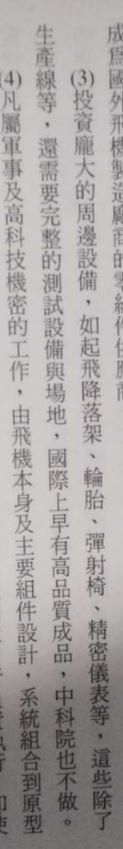 成為國外飛機製造廠商的零組件供應商
(3)投資龐大的周邊設備，如起飛降落架、輪胎、彈射椅、精密儀表等，這些除了
生產線等，還需要完整的測試設備與場地，國際上早有高品質成品，中科院也不做。
(4)凡屬軍事及高科技機密的工作，由飛機本身及主要組件設計，系統組合到原型